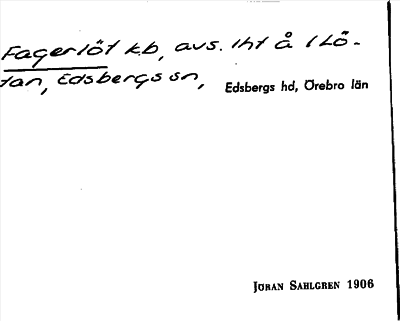 Fagerlöt kb, avs. 1ht å 1 Lö-
tan, Edsbergs sn, Edsbergs hd, Örebro län
JÖRAN SAHLGREN 1906